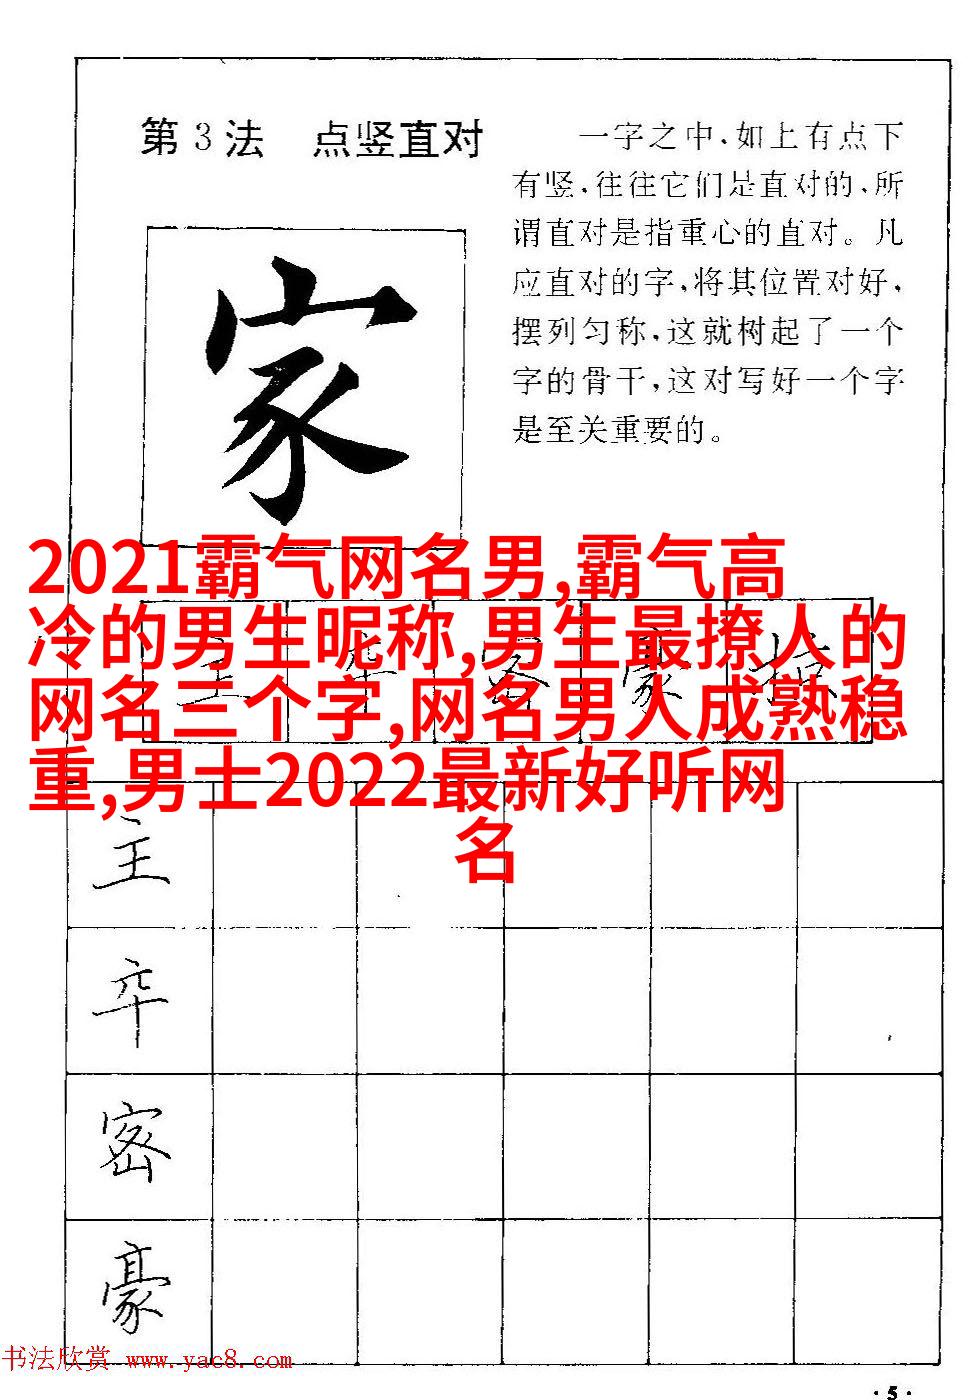 第3法 点竖直对
一字之中,如上有点下
有竖,往往它们是直对的,所
谓直对是指重心的直对。凡
应直对的字,将其位置对好,
摆列匀称,这就树起了一个
字的骨干,这对写好一个字
是至关重要的。
家
2021霸气网名男,霸气高
冷的男生昵称,男生最撩人的
网名三个字,网名男人成熟稳
重,男士2022最新好听网
名
主
卒
密
豪
书法欣赏 www.yac8.com
·5·